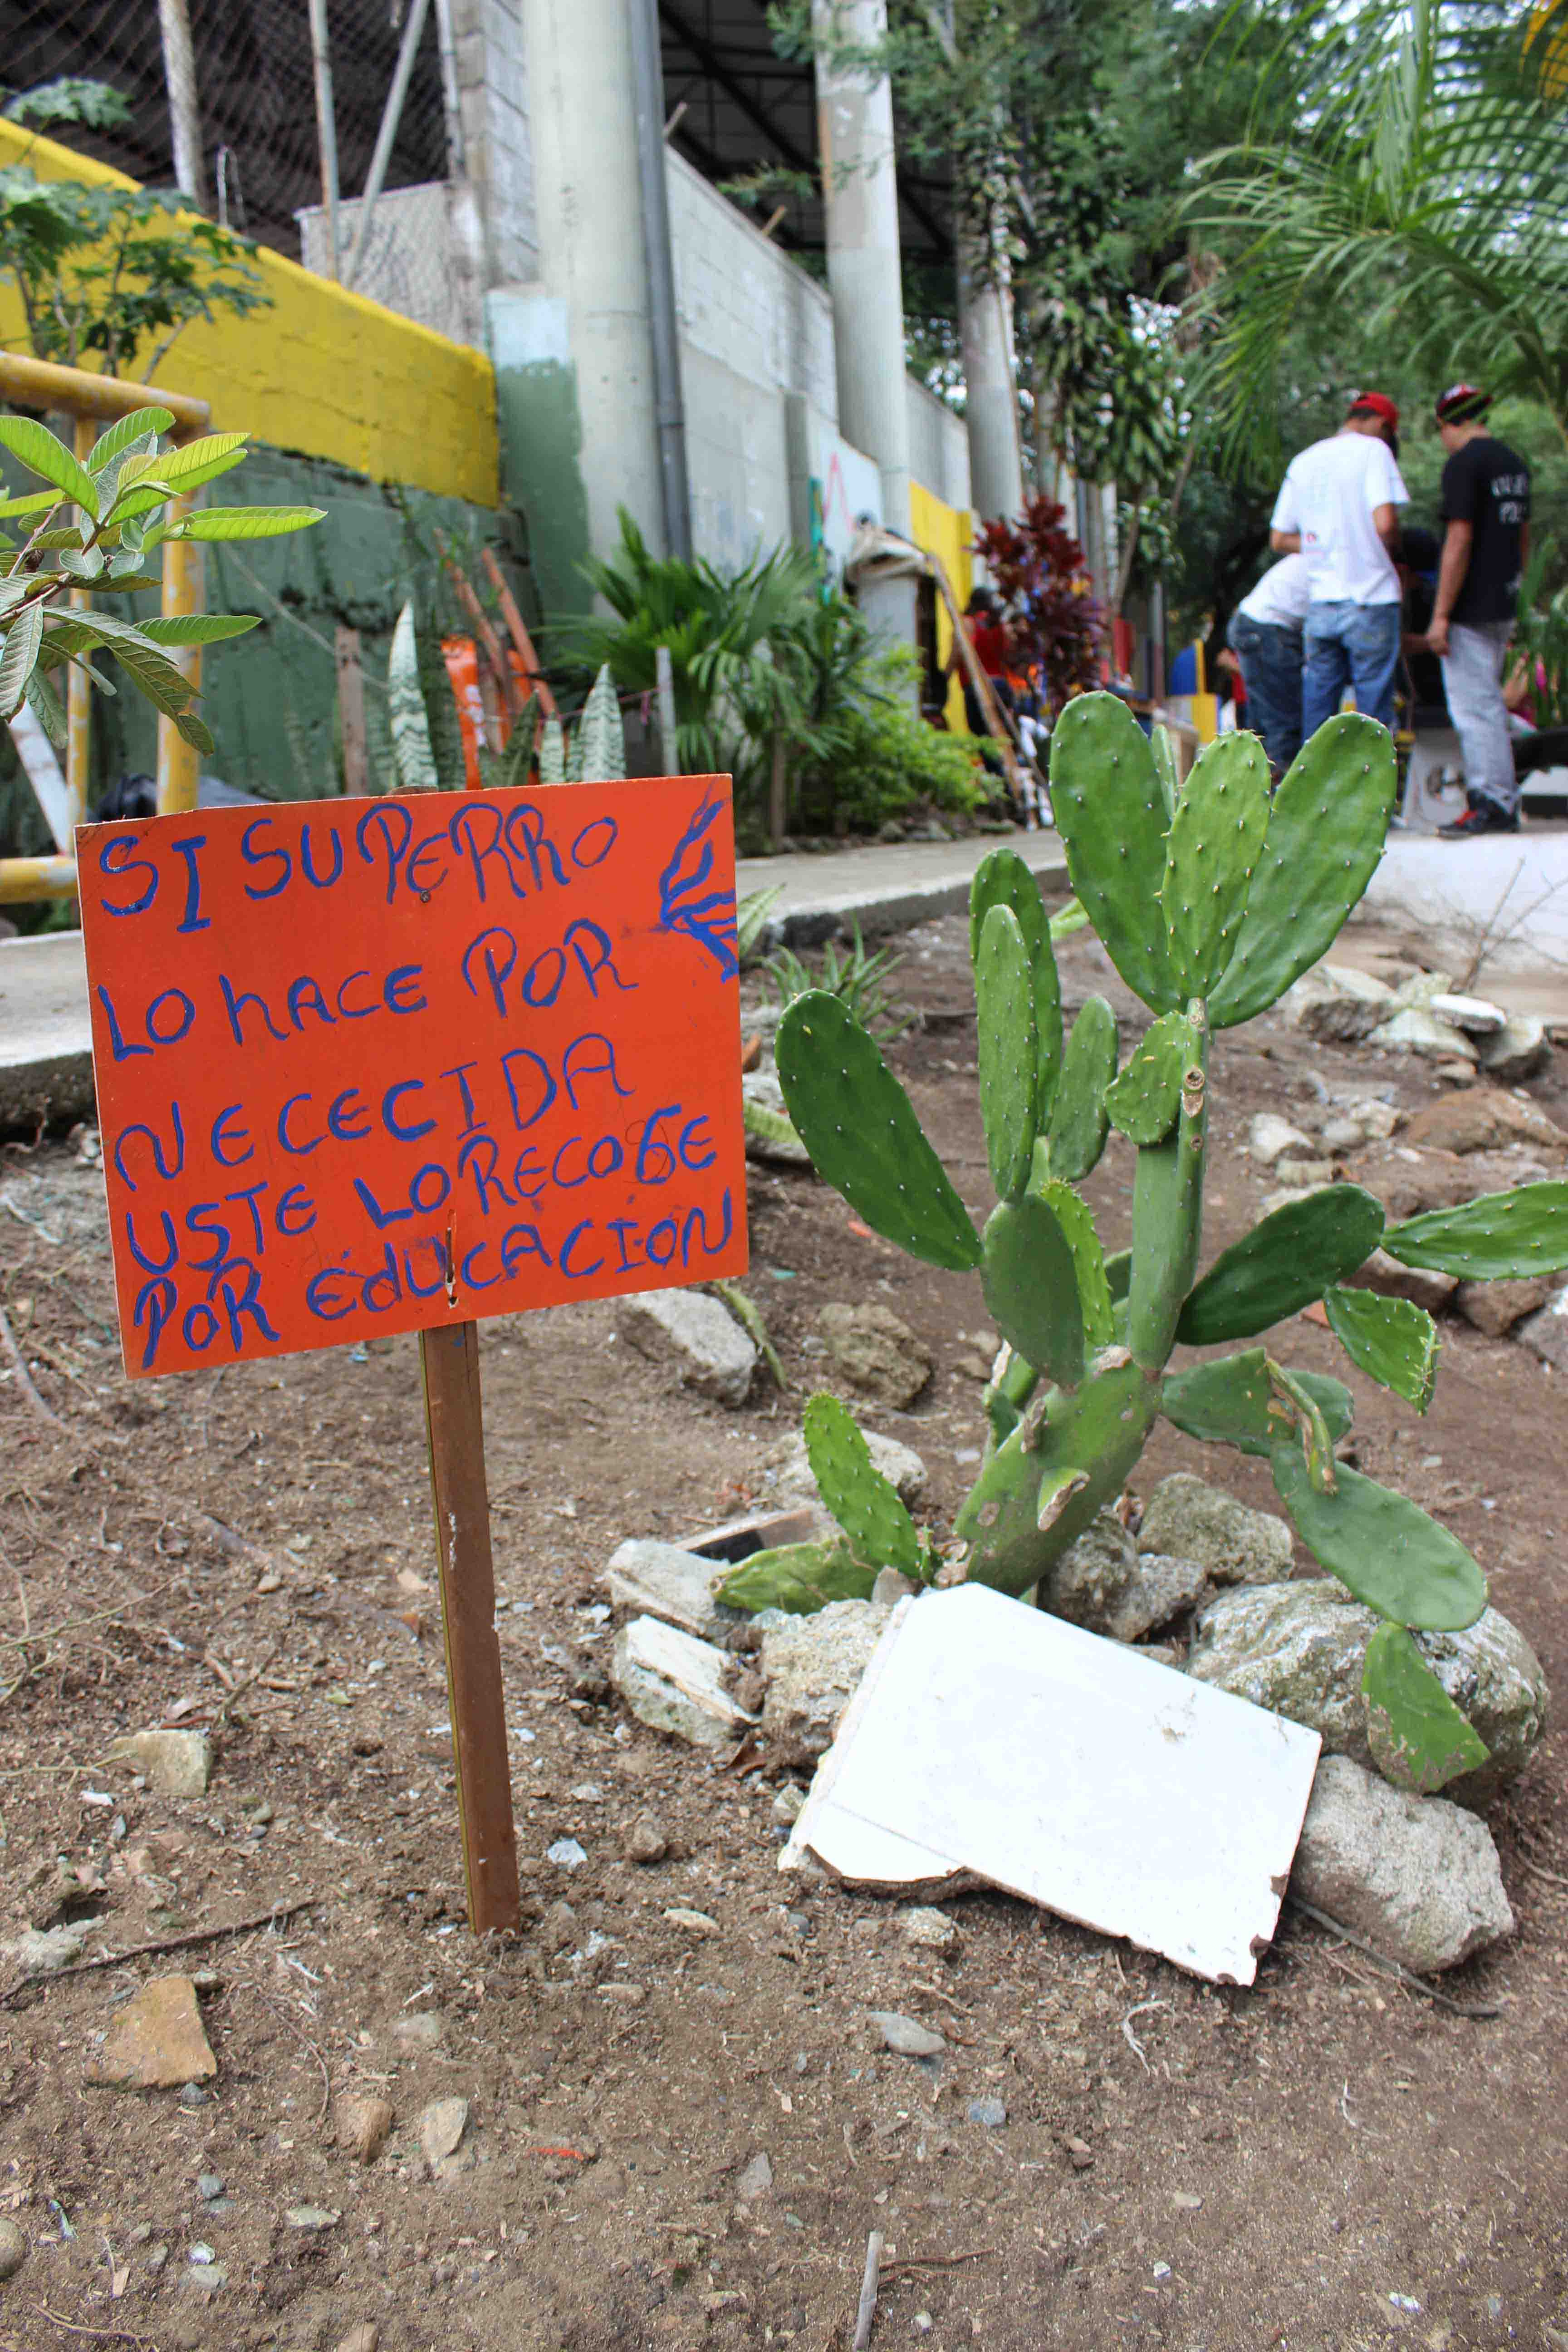 SI SU PERRO
LO hACE POR
NECECIDA
USTE LO RECOGE
POR EdUCACION